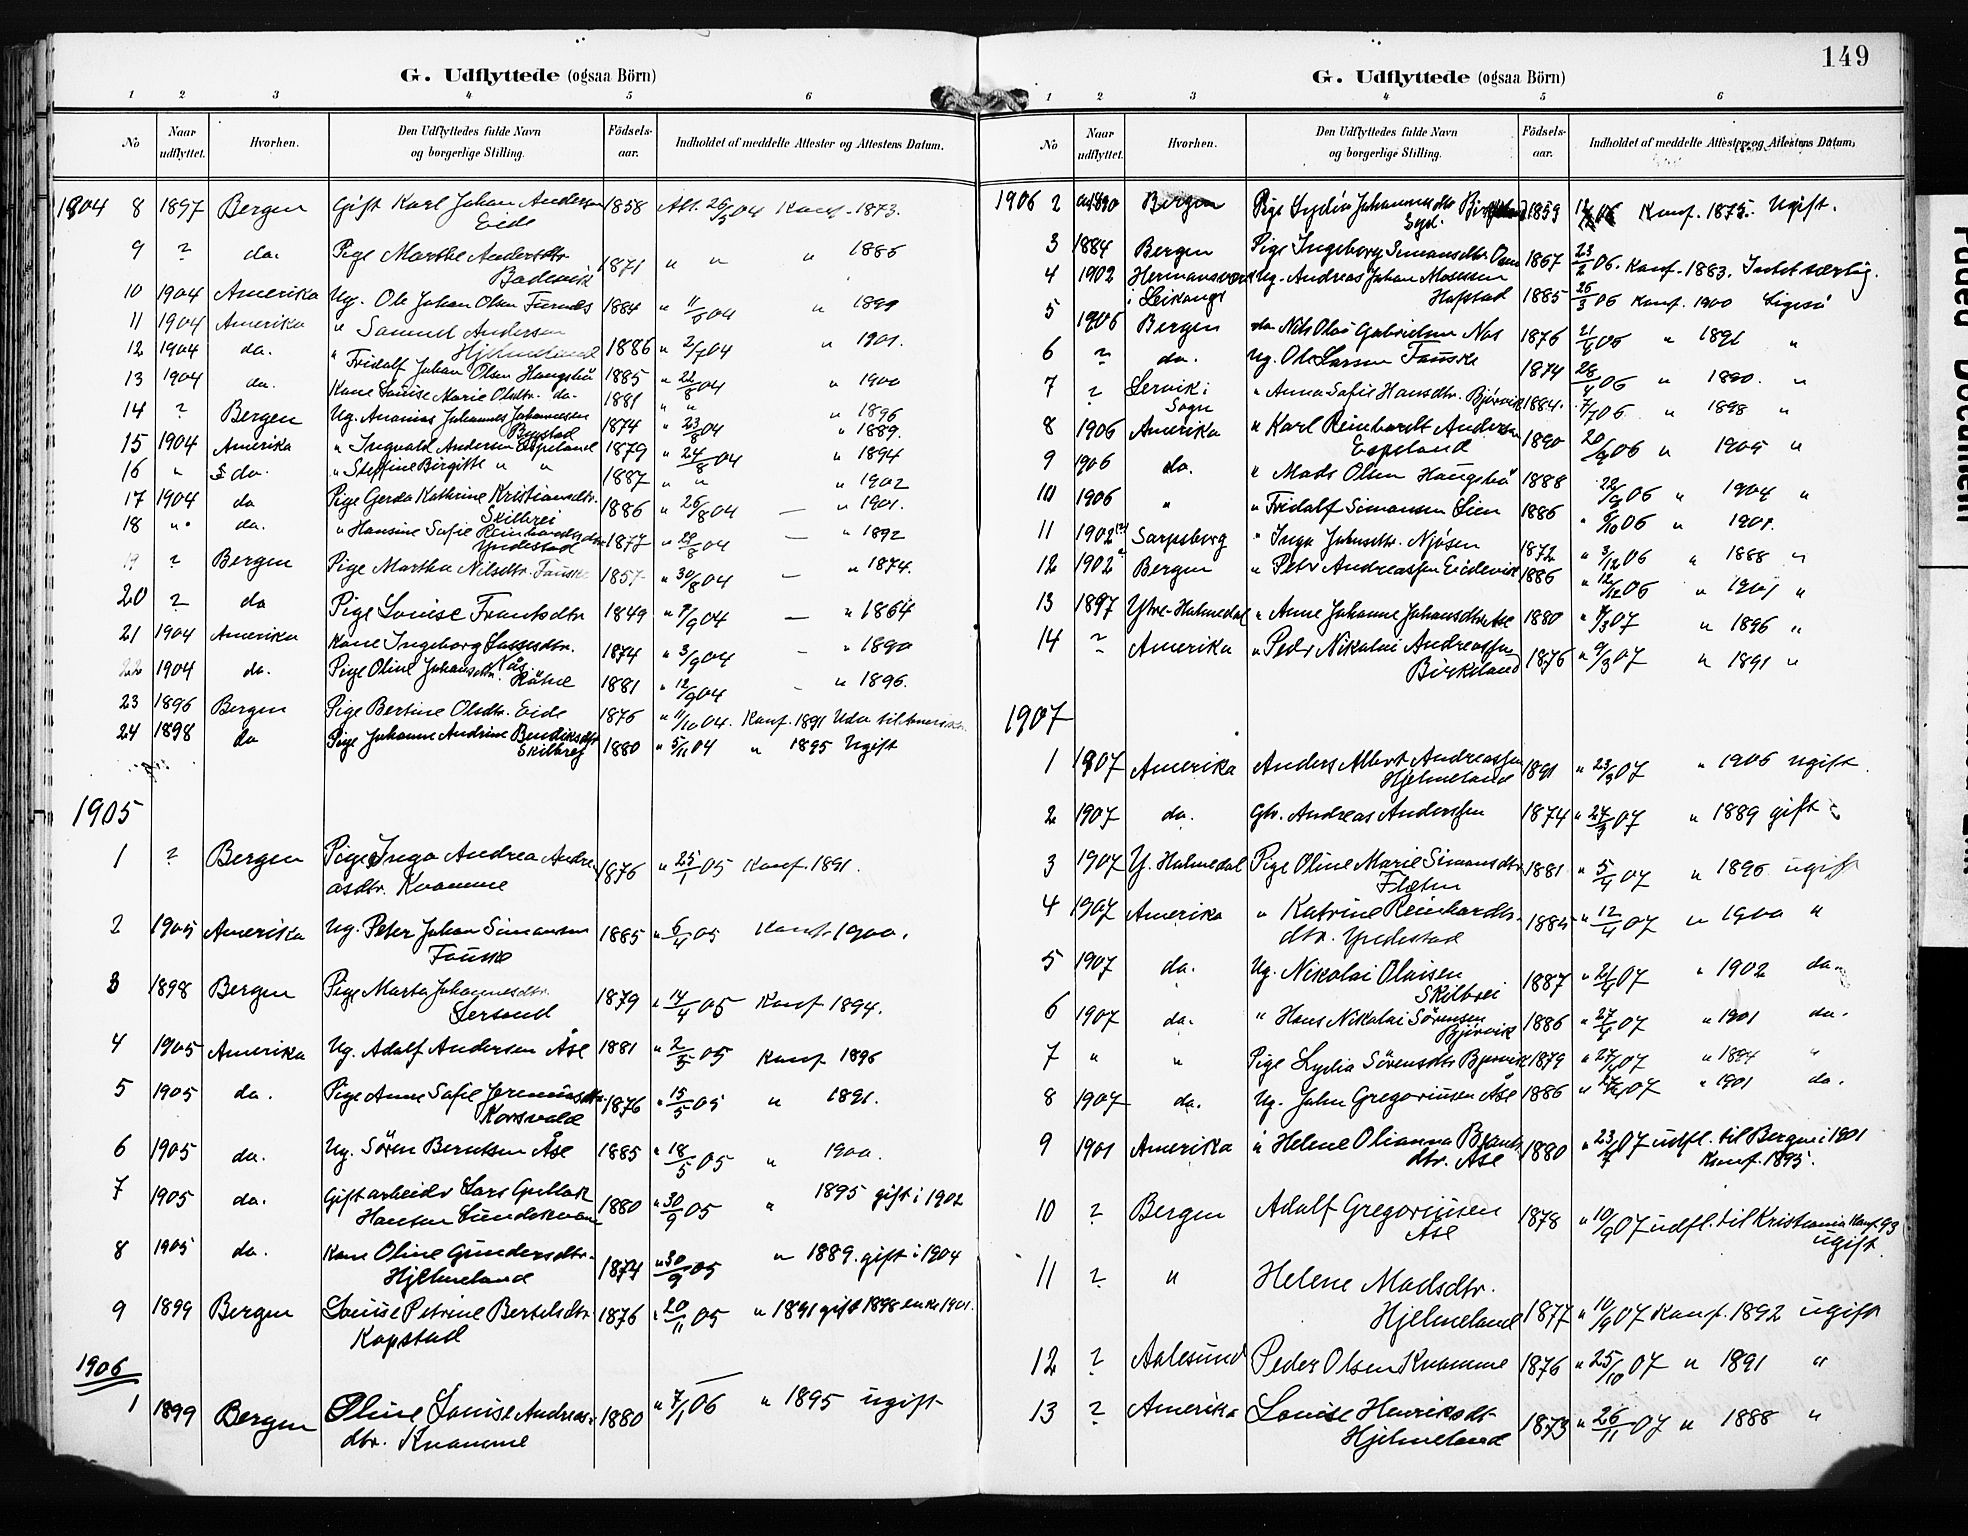 G. Udflyttede (ogsaa Börn)
1 2 3 4 5 6
No Naar udflyttet. Hvorhen. Den Udflyttedes fulde Navn og borgerlige Stilling. Födsels-aar. Indholdet af meddelte Attester og Attestens Datum.
1904 8 1897 Bergen Gift Karl Johan Andersen Eide 1858 Att. 26/5 04 Konf. 1873.
9 ? da. Pige Marthe Andersdtr. 1871 " " " 1885
10 1904 Amerika Ug. Ole Johan Olsen Furnes 1884 " 11/ 04 " 1899
11 1904 Amerika " Samuel Andersen Hjelmeland 1886 " 2/7 04 " 1901.
12 1904 da. " Fridolf Johan Olsen Haugsbö 1885 " 22/8 04 " 1900
13 1904 da. Kone Louise Marie Olsdtr. da. 1881 " " " 1896
14 ? Bergen Ug. Ananias Johannes Johannessen Bygstad 1874 " 23/8 04 " 1889.
15 1904 Amerika " Ingvald Andersen Espeland 1879 " 24/8 04 " 1894
16 " da. " Steffine Birgitte " " 1887 " " " 1902
17 1904 da Pige Gerda Kathrine Kristiansdtr. Skilbrei 1886 " 26/8 04 — " 1901.
18 " da. " Hansine Sofie Reinhardtsdtr Yndestad 1877 " 29/8 04 — " 1892
19 ? Bergen Pige Martha Nilsdtr. Fauske 1857 " 30/8 04 — " 1874.
20 ? da Pige Louise Frantsdtr 1849 " 9/9 04 — " 1864
21 1904 Amerika Kone Ingeborg Lassesdtr. Nås 1874 " 3/9 04 - " 1890
22 1904 da. Pige Oline Johansdtr. 1881 " 12/9 04 - " 1896.
23 1896 Bergen Pige Bertine Olsdtr. Eide 1876 " 11/10 04. Konf. 1891 Uda til Amerika
24 1898 da Pige Johanne Andrine Bendiksdtr Skilbrej 1880 " 5/11 04 " 1895 Ugift
1905
1 ? Bergen Pige Inga Andrea Andreasdtr. Kvamme 1876 " 25/1 05 Konf. 1891.
2 1905 Amerika Ug. Peter Johan Simonsen Fauske 1885 " 6/4 05 Konf. 1900.
3 1898 Bergen Pige Marta Johannesdtr. Lersund 1879 " 14/4 05 Konf 1894.
4 1905 Amerika Ug. Adolf Andersen Åse 1881 " 2/5 05 Konf 1896
5 1905 da. Pige Anne Sofie Jeremiasdtr. Korsvold 1876 " 15/5 05 " 1891.
6 1905 da. Ug. Sören Berntsen Åse 1885 " 18/5 05 " 1900.
7 1905 da. Gift arbeider Lars Gullak Hansen 1880 " 30/9 05 " 1895 gift i 1902
8 1905 da. Kone Oline Gundersdtr. Hjelmeland 1874 " 30/9 05 " 1889. gift i 1904
9 1899 Bergen Louise Petrine Bertelsdtr. Kopstad 1876 " 20/11 05 " 1891 gift 1898 enke 1901.
1906
1 1899 Bergen Oline Louise Andreasdtr. Kvamme 1880 " 7/1 06 " 1895 ugift
149
G. Udflyttede (ogsaa Börn)
1 2 3 4 5 6
No Naar udflyttet. Hvorhen. Den Udflyttedes fulde Navn og borgerlige Stilling. Födsels-aar. Indholdet af meddelte Attester og Attestens Datum.
1906 2 Bergen Pige Lydia Johannesdtr 1859 06 Konf. 1875. Ugift.
3 1884 Bergen Pige Ingeborg Simonsdtr. 1867 23/2 06. Konf. 1883. Intet særlig.
4 1902 Hermansverk i Leikanger Ug. Andreas Johan Mosessen Hafstad 1885 26/3 06 Konf. 1900 Ligesö
5 1906 Bergen da Nils Olai Gabrielsen Nas 1876 21/4 06 " 1891 "
6 ? da. Ug. Ole Larsen Fauske 1874 28/4 06 " 1890. "
7 ? Lervik i Sogn " Anna Sofie Hansdtr. Bjørvik 1884. 7/7 06 " 1898 "
8 1906 Amerika " Karl Reinhardt Andersen Espeland 1890 20/9 06 " 1905 "
9 1906 da. " Mads Olsen Haugsbö 1888 22/9 06 " 1904 "
10 1906 " " Fridolf Simonsen Lien 1886 " 9/10 06 " 1901.
11 1902 Sarpsborg " Inga Johnsdtr. Njøsen 1872 " 3/12 06 " 1888 "
12 1902 Bergen " Peter Andreassen Eidevik 1886 " 12/12 06 " 1901 "
13 1897 Ytre-Holmedal " Anne Johanne Johansdtr. Åse 1880 " 9/3 07 " 1896 "
14 ? Amerika " Peder Nikolai Andreassen Birkeland 1876 " 9/3 07 " 1891 "
1907
1 1907 Amerika Anders Albert Andreassen Hjelmeland 1891 " 23/3 07 " 1906 ugift.
2 1907 da. Gbr. Andreas Anderssen 1874 " 27/3 07 " 1889 gift
3 1907 Y. Holmedal Pige Oline Marie Simonsdtr. Fløten 1881 " 5/4 07 " 1896 ugift
4 1907 Amerika " Katrine Reinhardtsdtr. Yndestad 1885 " 12/4 07 " 1900 "
5 1907 da. Ug. Nikolai Olaisen Skilbrei 1887 " 21/4 07 " 1902 da.
6 1907 da. " Hans Nikolai Sørensen Bjørvik 1886 " 27/4 07 " 1901 da.
7 " " Pige Lydia Sörensdtr Bjørvik 1879 " 27/ 07 " 1894 "
8 1907 da. Ug. John Gregoriusen Åse 1886 " 27/ 07 " 1901 da.
9 1901 Amerika " Helene Olianna Berntsdtr. Åse 1880 " 23/7 07 udfl. til Bergen i 1901 Konf. 1895.
10 ? Bergen Adolf Gregoriusen Åse 1878 " 10/9 07 udfl. til Kristiania Konf. 93 ugift.
11 ? " Helene Madsdtr. Hjelmeland 1877 " 10/9 07 Konf. 1892 ugift
12 ? Aalesund Peder Olsen Kvamme 1876 " 25/10 07 " 1891 "
13 ? Amerika Louise Henriksdtr Hjelmeland 1873 " 26/11 07 " 1888 "